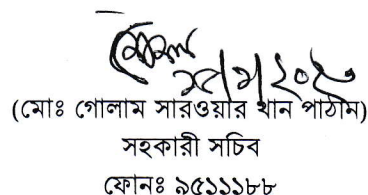 (মোঃ গোলাম সারওয়ার খান পাঠান)
সহকারী সচিব
ফোনঃ ৯৫১১১৮৮